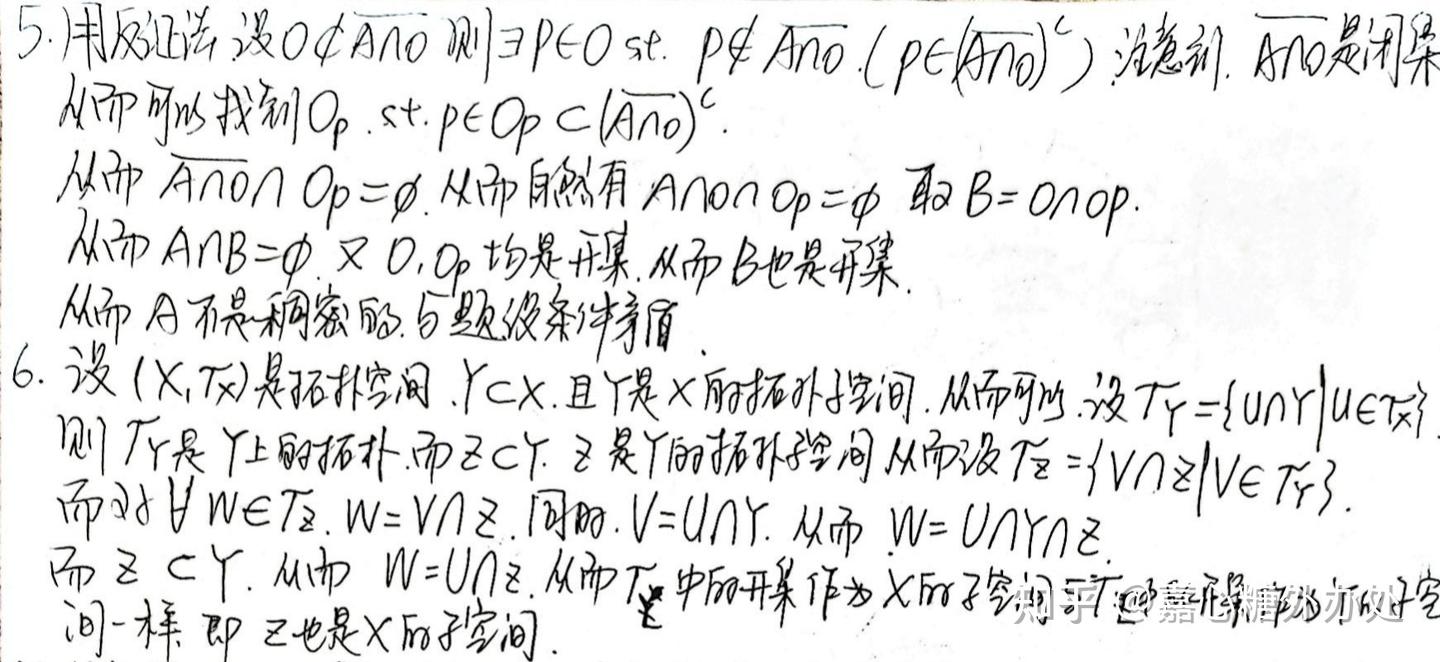 5. 用反证法,设O⊄\overline{A∩O} 则∃P∈O st. p∉\overline{A∩O}.(p∈(\overline{A∩O})^c) 注意到. \overline{A∩O}是闭集
从而可以找到O_p. st. p∈O_p⊂(\overline{A∩O})^c.
从而 \overline{A∩O}∩O_p=ø. 从而自然有 A∩O∩O_p=ø 取B=O∩O_p.
从而A∩B=ø. 又O,O_p均是开集,从而B也是开集.
从而A不是稠密的,与题设条件矛盾.
6. 设(X,T_X)是拓扑空间.Y⊂X.且Y是X的拓扑子空间.从而可以.设T_Y={U∩Y|U∈T_X}.
则T_Y是Y上的拓扑.而Z⊂Y. Z是Y的拓扑子空间从而设T_Z={V∩Z|V∈T_Y}.
而对∀W∈T_Z. W=V∩Z.同时.V=U∩Y. 从而 W=U∩Y∩Z.
而Z⊂Y. 从而 W=U∩Z.从而T_Z中的开集作为X的子空间 子空
间一样 即Z也是X的子空间.
知乎 @嘉心糖外办处